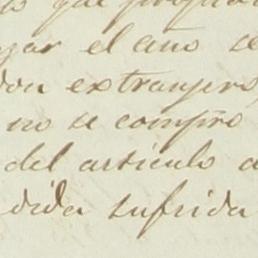 que
gar el año se
don extranjero,
no se compró
del articulo a
dida sufrida